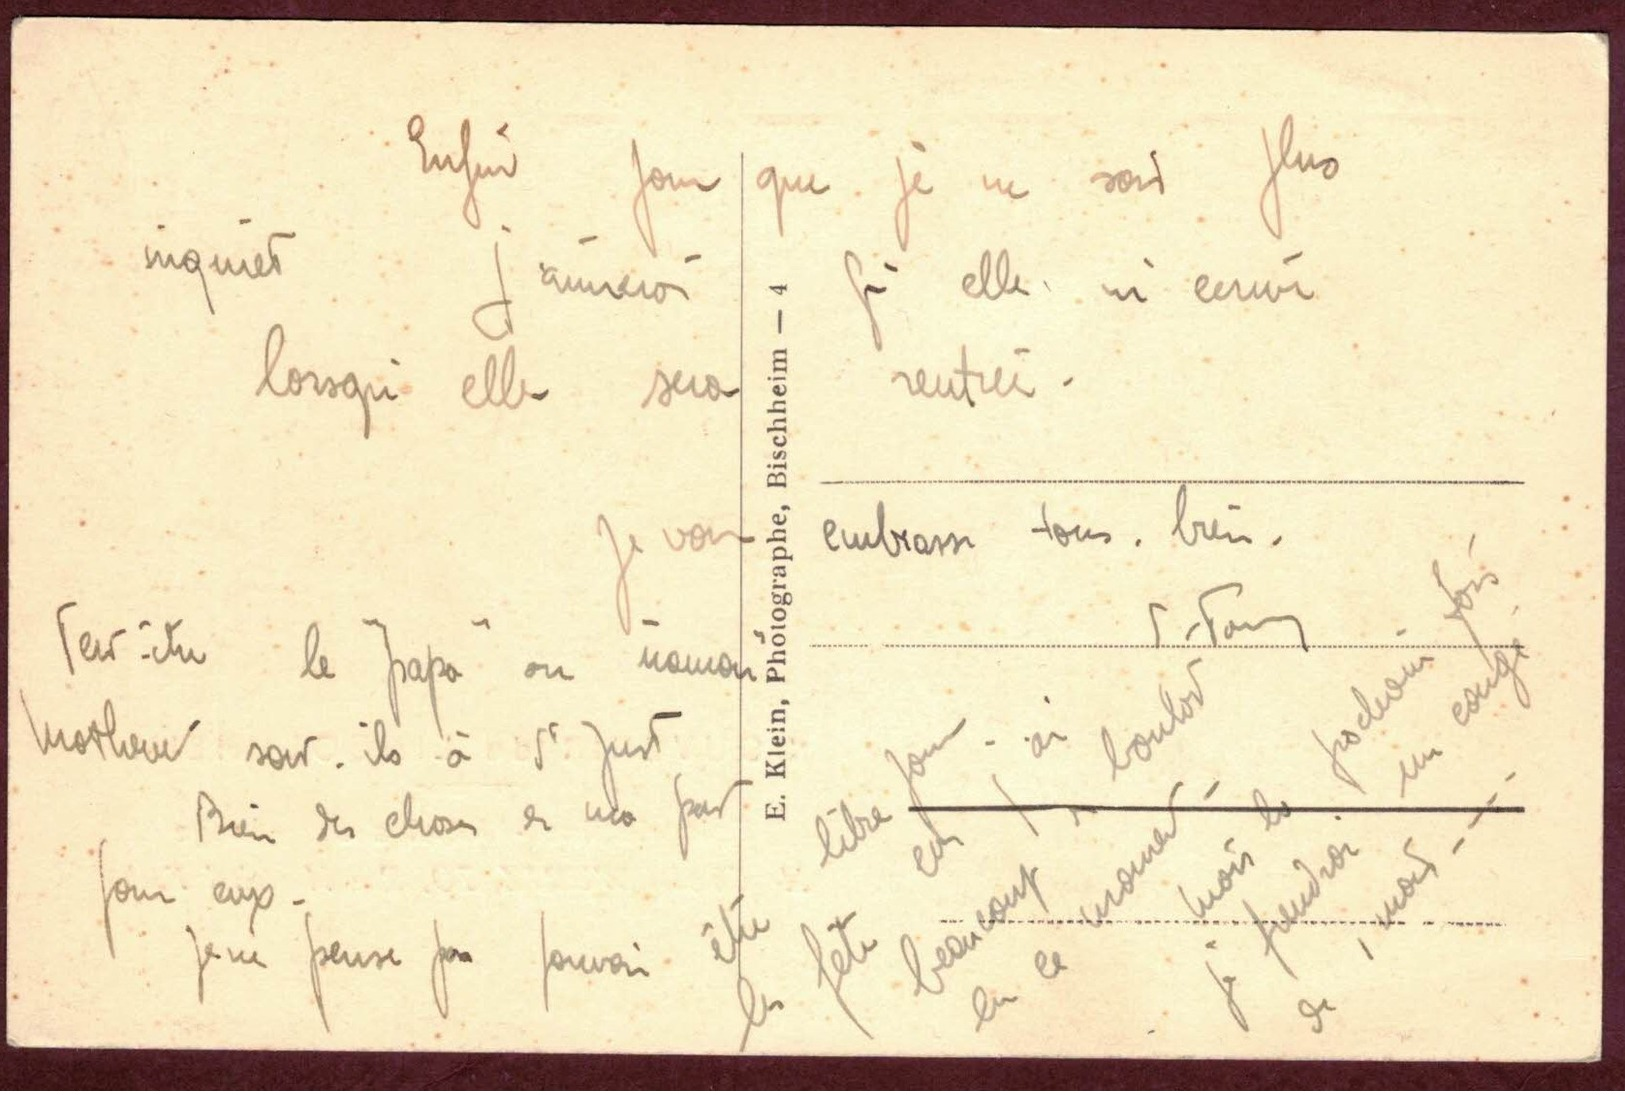 Enfin pour que je ne sois plus
inquiet j'aimerai si elle m'écrivi
lorsqu'elle sera rentrée.
Je vous embrasse tous. bien.
le "papa" ou maman
sont-ils à St Just
Bien des choses de ma part
pour eux.
je ne pense pas pouvoir être
libre pour
les fête car j'ai
beaucoup de boulot
en ce moment -
mais le prochain fois
je prendrai un congé
de 1 mois ---
E. Klein, Photographe, Bischheim — 4